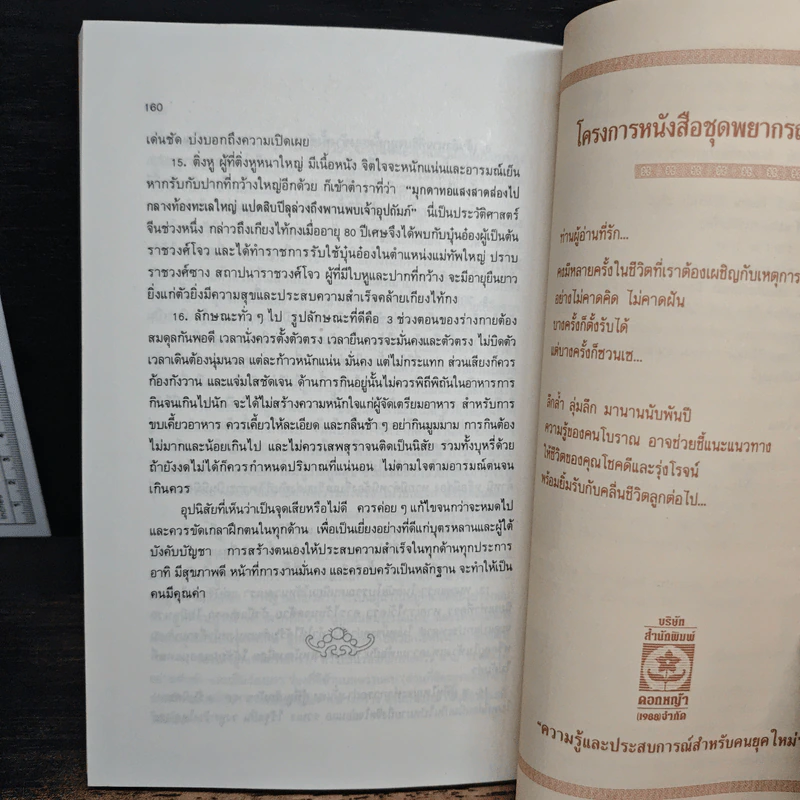 160
เด่นชัด บ่งบอกถึงความเปิดเผย
15. ติ่งหู ผู้ที่ติ่งหูหนาใหญ่ มีเนื้อหนัง จิตใจจะหนักแน่นและอารมณ์เย็น
หากรับกับปากที่กว้างใหญ่อีกด้วย ก็เข้าตำราที่ว่า "มุกดาทอแสงสาดส่องไป
กลางท้องทะเลใหญ่ แปดสิบปีลุล่วงถึงพานพบเจ้าอุปถัมภ์" นี่เป็นประวัติศาสตร์
จีนช่วงหนึ่ง กล่าวถึงเกียงไท้กงเมื่ออายุ 80 ปีเศษจึงได้พบกับบุ๋นอ๋องผู้เป็นต้น
ราชวงศ์โจว และได้ทำราชการรับใช้บุ๋นอ๋องในตำแหน่งแม่ทัพใหญ่ ปราบ
ราชวงศ์ซาง สถาปนาราชวงศ์โจว ผู้ที่มีใบหูและปากที่กว้าง จะมีอายุยืนยาว
ยิ่งแก่ตัวยิ่งมีความสุขและประสบความสำเร็จคล้ายเกียงไท้กง
16. ลักษณะทั่ว ๆ ไป รูปลักษณะที่ดีคือ 3 ช่วงตอนของร่างกายต้อง
สมดุลกันพอดี เวลานั่งควรตั้งตัวตรง เวลายืนควรจะมั่นคงและตัวตรง ไม่บิดตัว
เวลาเดินต้องนุ่มนวล แต่ละก้าวหนักแน่น มั่นคง แต่ไม่กระแทก ส่วนเสียงก็ควร
ก้องกังวาน และแจ่มใสชัดเจน ด้านการกินอยู่นั้นไม่ควรพิถีพิถันในอาหารการ
กินจนเกินไปนัก จะได้ไม่สร้างความหนักใจแก่ผู้จัดเตรียมอาหาร สำหรับการ
ขบเคี้ยวอาหาร ควรเคี้ยวให้ละเอียด และกลืนช้า ๆ อย่ากินมูมมาม การกินต้อง
ไม่มากและน้อยเกินไป และไม่ควรเสพสุราจนติดเป็นนิสัย รวมทั้งบุหรี่ด้วย
ถ้ายังงดไม่ได้ก็ควรกำหนดปริมาณที่แน่นอน ไม่ตามใจตามอารมณ์ตนจน
เกินควร
อุปนิสัยที่เห็นว่าเป็นจุดเสียหรือไม่ดี ควรค่อย ๆ แก้ไขจนกว่าจะหมดไป
และควรขัดเกลาฝึกตนในทุกด้าน เพื่อเป็นเยี่ยงอย่างที่ดีแก่บุตรหลานและผู้ใต้
บังคับบัญชา การสร้างตนเองให้ประสบความสำเร็จในทุกด้านทุกประการ
อาทิ มีสุขภาพดี หน้าที่การงานมั่นคง และครอบครัวเป็นหลักฐาน จะทำให้เป็น
คนมีคุณค่า
โครงการหนังสือชุดพยากรณ์
ท่านผู้อ่านที่รัก...
คงมีหลายครั้งในชีวิตที่เราต้องเผชิญกับเหตุการ
อย่างไม่คาดคิด ไม่คาดฝัน
บางครั้งก็ตั้งรับได้
แต่บางครั้งก็ซวนเซ...
ลึกล้ำ ลุ่มลึก มานานนับพันปี
ความรู้ของคนโบราณ อาจช่วยชี้แนะแนวทาง
ให้ชีวิตของคุณโชคดีและรุ่งโรจน์
พร้อมยิ้มรับกับคลื่นชีวิตลูกต่อไป...
บริษัท
สำนักพิมพ์
ดอกหญ้า
(1988)จำกัด
"ความรู้และประสบการณ์สำหรับคนยุคใหม่"